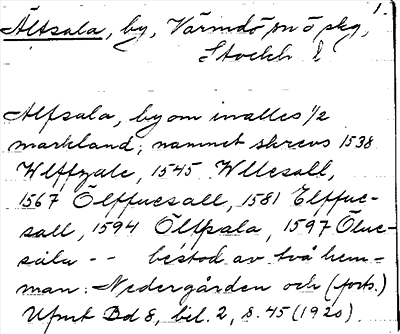 1.
Ältsala, by, Värmdö sn ö skg,
Stockh l
Alfsala, by om inalles 1/2
markland; namnet skrevs 1538
Wlffzale, 1545 Wllesall,
1567 Ölffuesall, 1581 Elffue-
sall, 1594 Öltsala, 1597 Öluc-
sala -- bestod av två hem-
man: Nedergården och (forts.)
Ufmt Bd 8, bil. 2, s. 45 (1920).